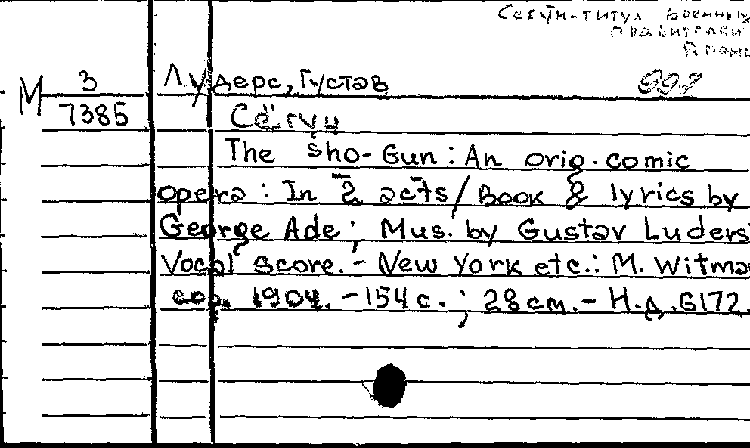 Сегун-титул военных
правителей
Япон
М 3 Лудерс, Густав
7385 Сёгун
The sho-Gun : An orig. comic
opera : In 2 acts / Book & lyrics by
George Ade ; Mus. by Gustav Luders
Vocal score. - New York etc. : M. Witma
cop. 1904. - 154 с. ; 28 cm. - Н.д. 6172.